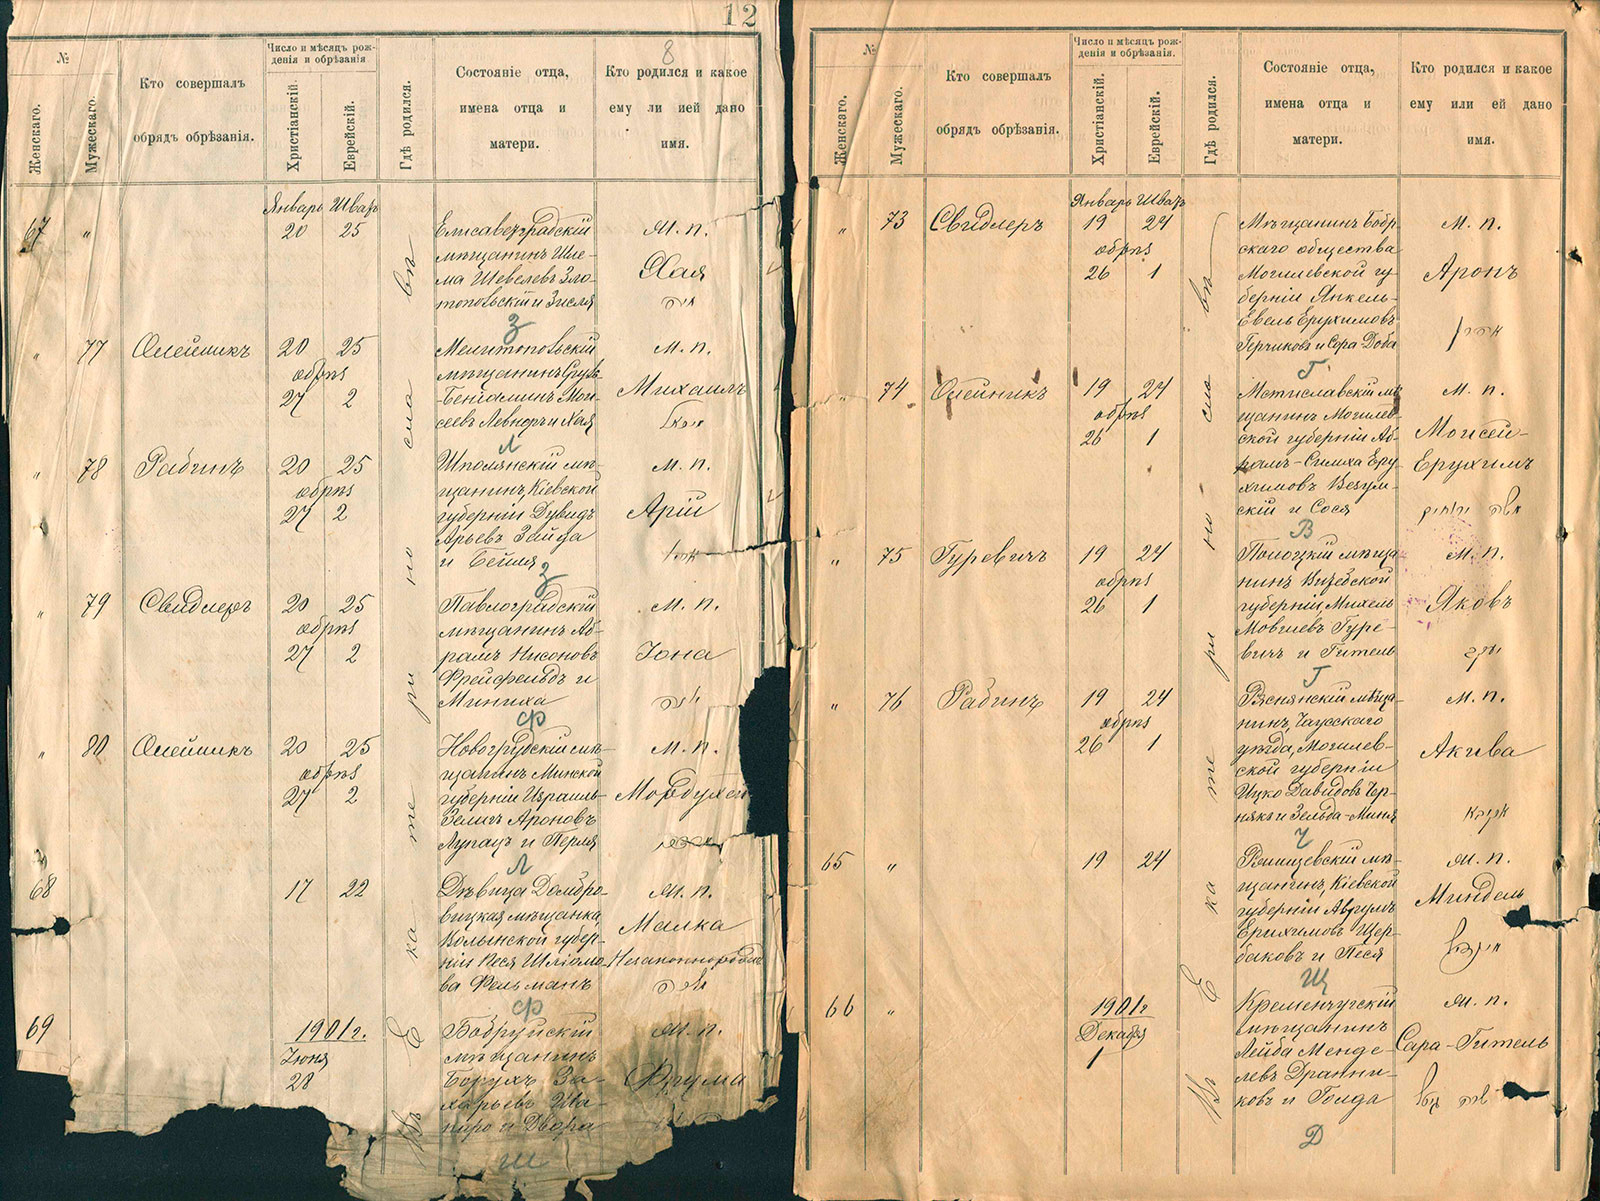 12
8
№
Женскаго.
Мужескаго.
Кто совершалъ
обрядъ обрѣзанія.
Число и мѣсяцъ рож-
денія и обрѣзанія
Христіанскій.
Еврейскій.
Гдѣ родился.
Состояніе отца,
имена отца и
матери.
Кто родился и какое
ему ли ией дано
имя.
Январь Шватъ
67 " 20 25
Елисаветградскій
мѣщанинъ Шле-
ма Шевелевъ Зло-
топольскій и Зисля
М. п.
Хая
חיה
З
" 77 Олейникъ 20 25
обрѣз
27 2
Мелитопольскій
мѣщанинъ Сруль-
-Беніаминъ Мои-
сеевъ Левноръ и Хая
М. п.
Михаилъ
מיכאל
Л
" 78 Рабинъ 20 25
обрѣз
27 2
Шполянскій мѣ-
щанинъ, Кіевской
губерніи Дувидъ
Арьевъ Зайда
и Бейля
М. п.
Арій
ארי
З
" 79 Свидлеръ 20 25
обрѣз
27 2
Павлоградскій
мѣщанинъ Аб-
рамъ Нисоновъ
Фрейфельдъ и
Миниха
М. п.
Іона
יונה
Ф
" 80 Олейникъ 20 25
обрѣз
27 2
Новогрудскій мѣ-
щанинъ Минской
губерніи Израиль-
Зеликъ Ароновъ
Лупацъ и Перля
М. п.
Мордухай
מרדכי
Л
68 17 22
Дѣвица Домбро-
вицкая мѣщанка,
Волынской губер-
ніи Песя Шліомо-
ва Фельманъ
М. п.
Малка
Незаконнорожд
מלכה
Ф
69 1901 г.
Іюня
28
Бобруйскій
мѣщанинъ
Борухъ За-
харьевъ Ша-
пиро и Двора
М. п.
Фрума
Ш
Въ Екатеринославѣ
№
Женскаго.
Мужескаго.
Кто совершалъ
обрядъ обрѣзанія.
Число и мѣсяцъ рож-
денія и обрѣзанія.
Христіанскій.
Еврейскій.
Гдѣ родился.
Состояніе отца,
имена отца и
матери.
Кто родился и какое
ему или ей дано
имя.
Январь Шватъ
" 73 Свидлеръ 19 24
обрѣз
26 1
Мѣщанинъ Бобр-
скаго общества
Могилевской гу-
берніи Янкель-
Евель Ерухимовъ
Герчиковъ и Сора-Доба
М. п.
Аронъ
אהרן
Г
" 74 Олейникъ 19 24
обрѣз
26 1
Мстиславскій мѣ-
щанинъ Могилев-
ской губерніи Аб-
рамъ-Симха Еру-
химовъ Везум-
скій и Сося
М. п.
Моисей-
Ерухимъ
משה ירוחים
В
" 75 Гуревичъ 19 24
обрѣз
26 1
Полоцкій мѣща-
нинъ Витебской
губерніи, Михель
Мовшевъ Гуре-
вичъ и Гитель
М. п.
Яковъ
יעקב
Г
" 76 Рабинъ 19 24
обрѣз
26 1
Ряснянскій мѣща-
нинъ, Чаусскаго
уѣзда, Могилев-
ской губерніи
Ицко Давидовъ Чер-
някъ и Зельда-Миня
М. п.
Акива
עקיבא
Ч
65 " 19 24
Ржищевскій мѣ-
щанинъ, Кіевской
губерніи Аврумъ
Ерихимовъ Щер-
баковъ и Песя
М. п.
Миндель
מינדל
Щ
66 " 1901 г
Декабря
1
Кременчугскій
мѣщанинъ
Лейба Менде-
левъ Дранни-
ковъ и Голда
М. п.
Сара-Гитель
שרה גיטל
Д
Въ Екатеринославѣ